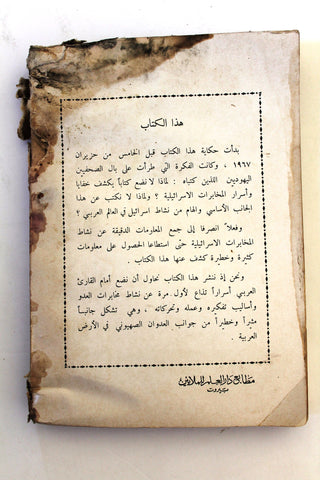 هذا الكتاب
بدأت حكاية هذا الكتاب قبل الخامس من حزيران
١٩٦٧ ، وكانت الفكرة التي طرأت على بال الصحفيين
اليهوديين اللذين كتباه : لماذا لا نضع كتاباً يكشف خفايا
وأسرار المخابرات الاسرائيلية ؟ ولماذا لا نكتب عن هذا
الجانب الأساسي والهام من نشاط اسرائيل في العالم العربي ؟
وفعلاً انصرفا إلى جمع المعلومات الدقيقة عن نشاط
المخابرات الاسرائيلية حتى استطاعا الحصول على معلومات
كثيرة وخطيرة كشف عنها هذا الكتاب .
ونحن إذ ننشر هذا الكتاب نحاول أن نضع أمام القارئ
العربي أسراراً تذاع لأول مرة عن نشاط مخابرات العدو
وأساليب تفكيره وعمله وتحركاته ، وهي تشكل جانباً
مثيراً وخطيراً من جوانب العدوان الصهيوني في الأرض
العربية .
مطابع دار العلم للملايين
بيروت